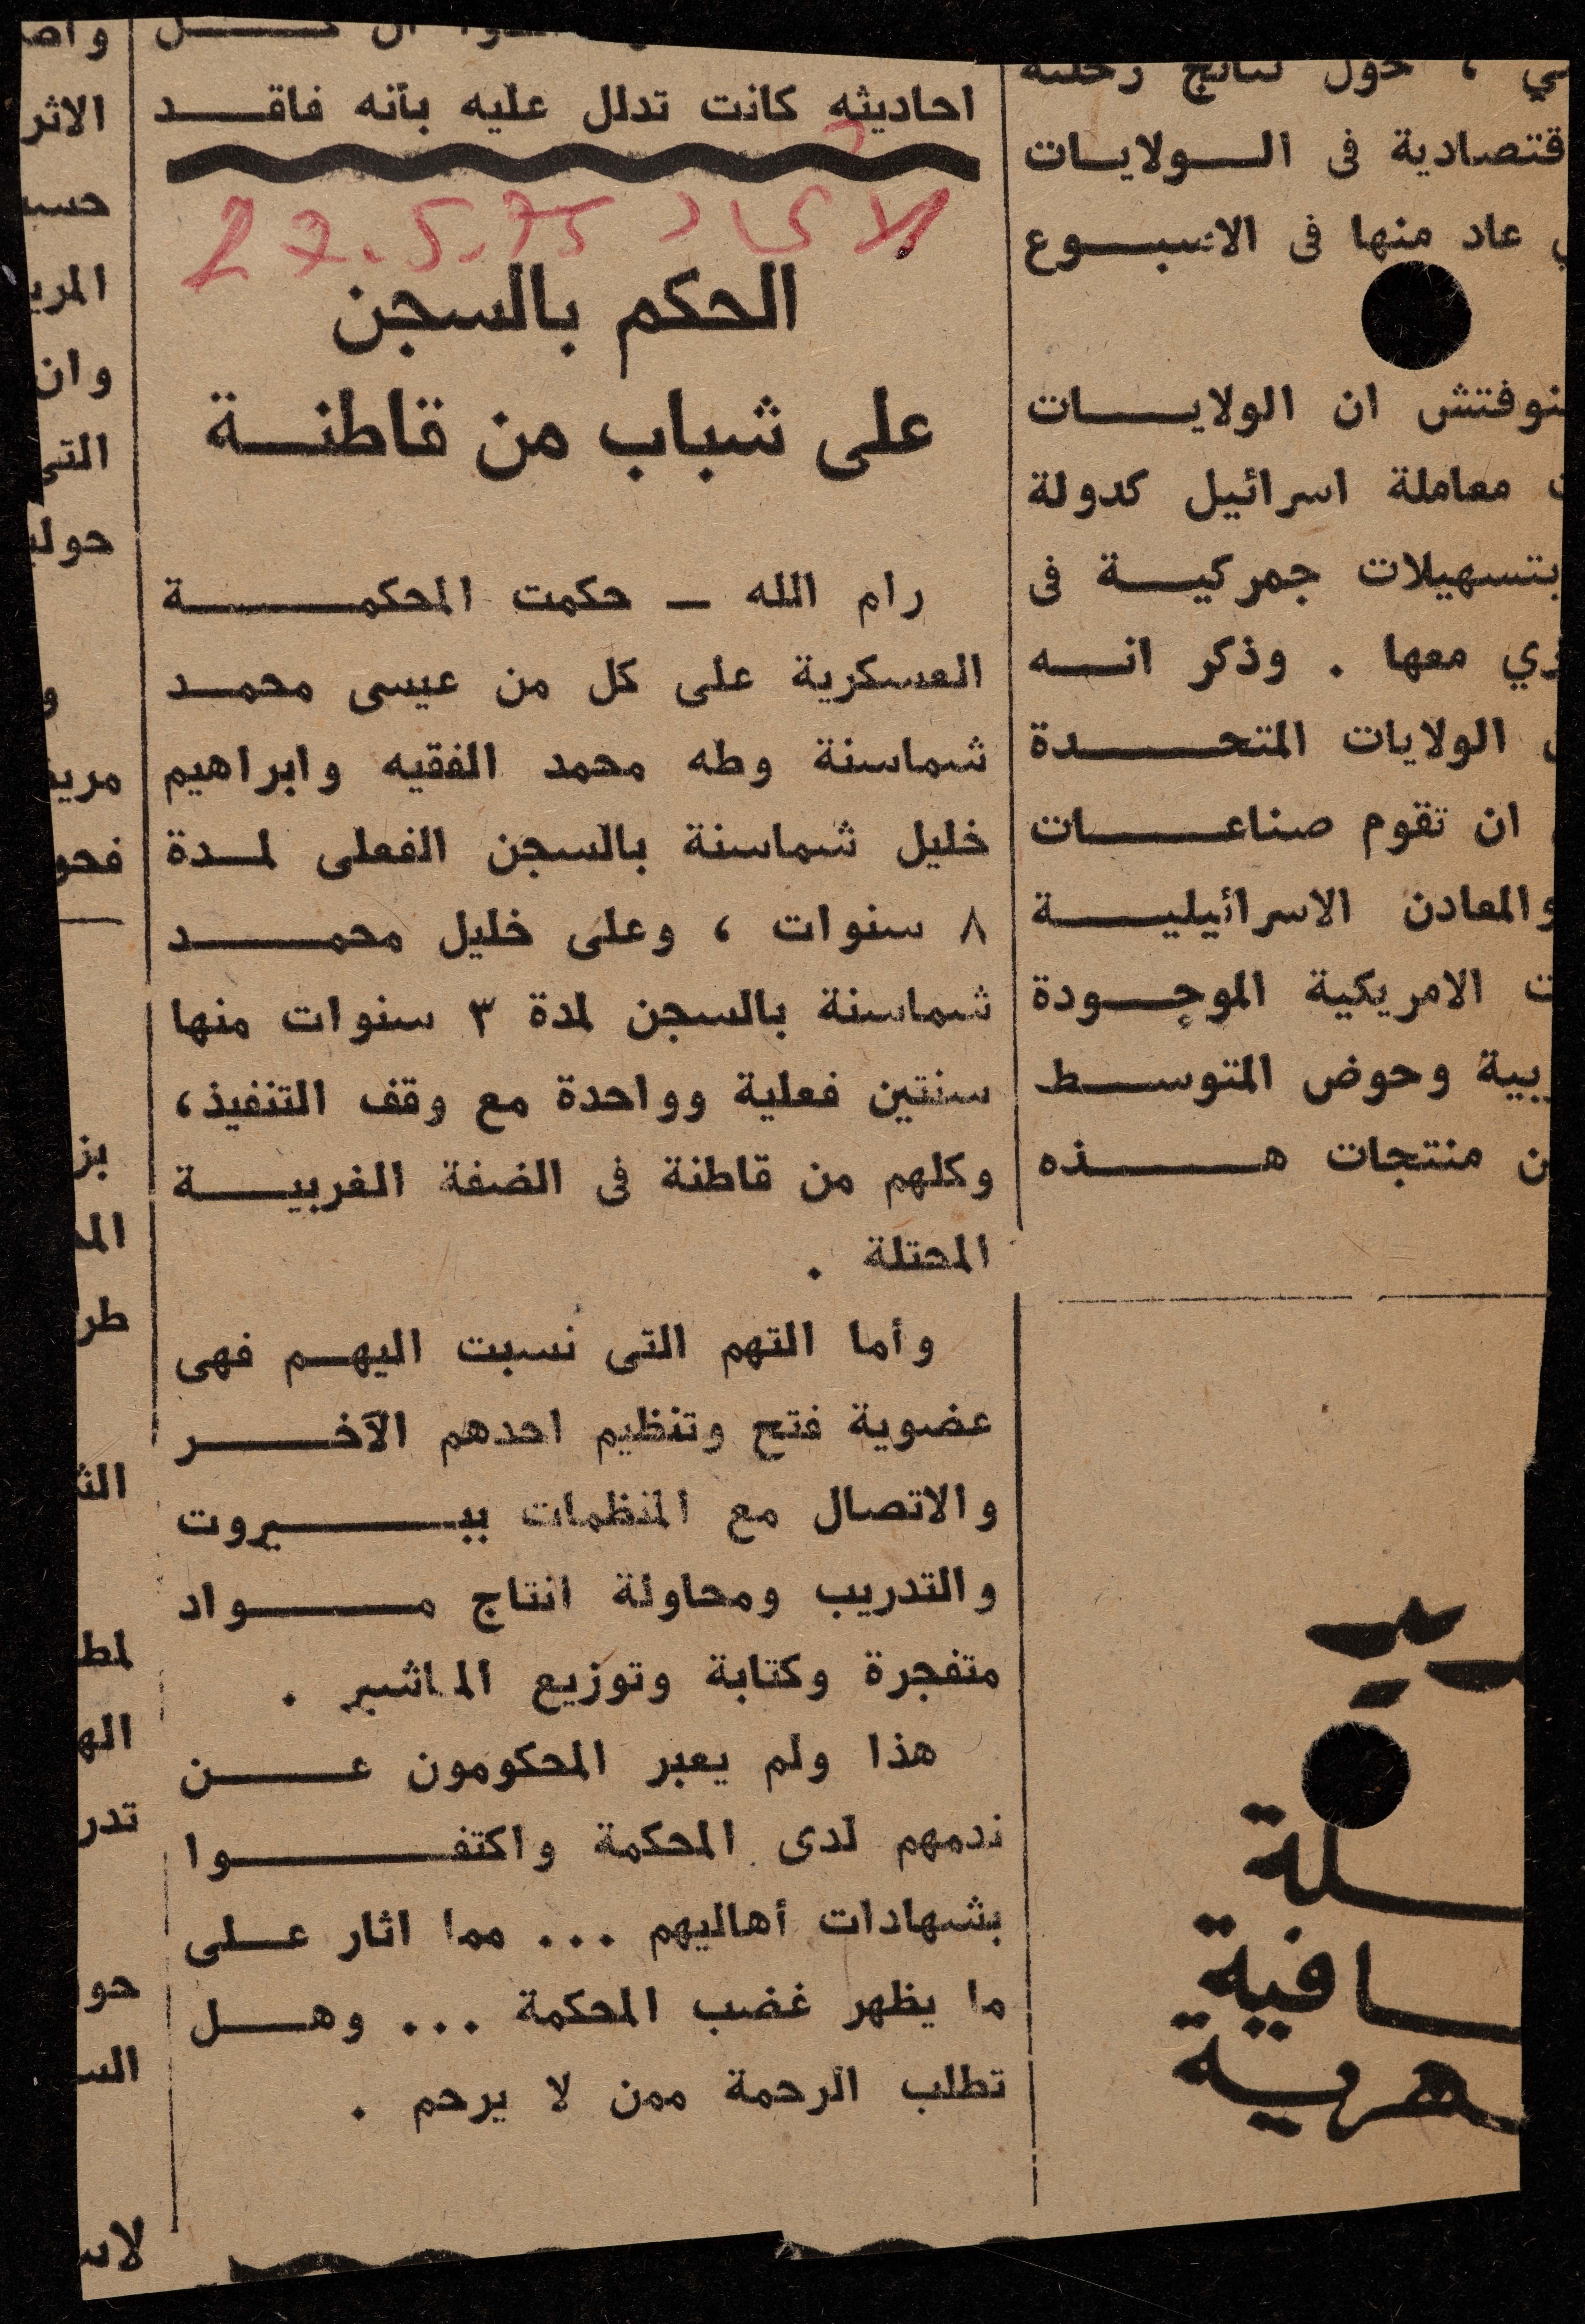 احاديثه كانت تدلل عليه بأنه فاقد
الاتحاد 27.5.75
الحكم بالسجن
على شباب من قاطنة
رام الله - حكمت المحكمة
العسكرية على كل من عيسى محمد
شماسنة وطه محمد الفقيه وابراهيم
خليل شماسنة بالسجن الفعلى لمدة
٨ سنوات ، وعلى خليل محمد
شماسنة بالسجن لمدة ٣ سنوات منها
سنتين فعلية وواحدة مع وقف التنفيذ،
وكلهم من قاطنة فى الضفة الغربية
المحتلة .
وأما التهم التى نسبت اليهم فهى
عضوية فتح وتنظيم احدهم الآخر
والاتصال مع المنظمات ببيروت
والتدريب ومحاولة انتاج مواد
متفجرة وكتابة وتوزيع المناشير .
هذا ولم يعبر المحكومون عن
ندمهم لدى المحكمة واكتفوا
بشهادات أهاليهم ... مما اثار على
ما يظهر غضب المحكمة ... وهل
تطلب الرحمة ممن لا يرحم .
، حول نتائج رحلته
فى الولايات
عاد منها فى الاسبوع
ان الولايات
معاملة اسرائيل كدولة
بتسهيلات جمركية فى
معها . وذكر انه
الولايات المتحدة
ان تقوم صناعات
والمعادن الاسرائيلية
الامريكية الموجودة
وحوض المتوسط
منتجات هذه